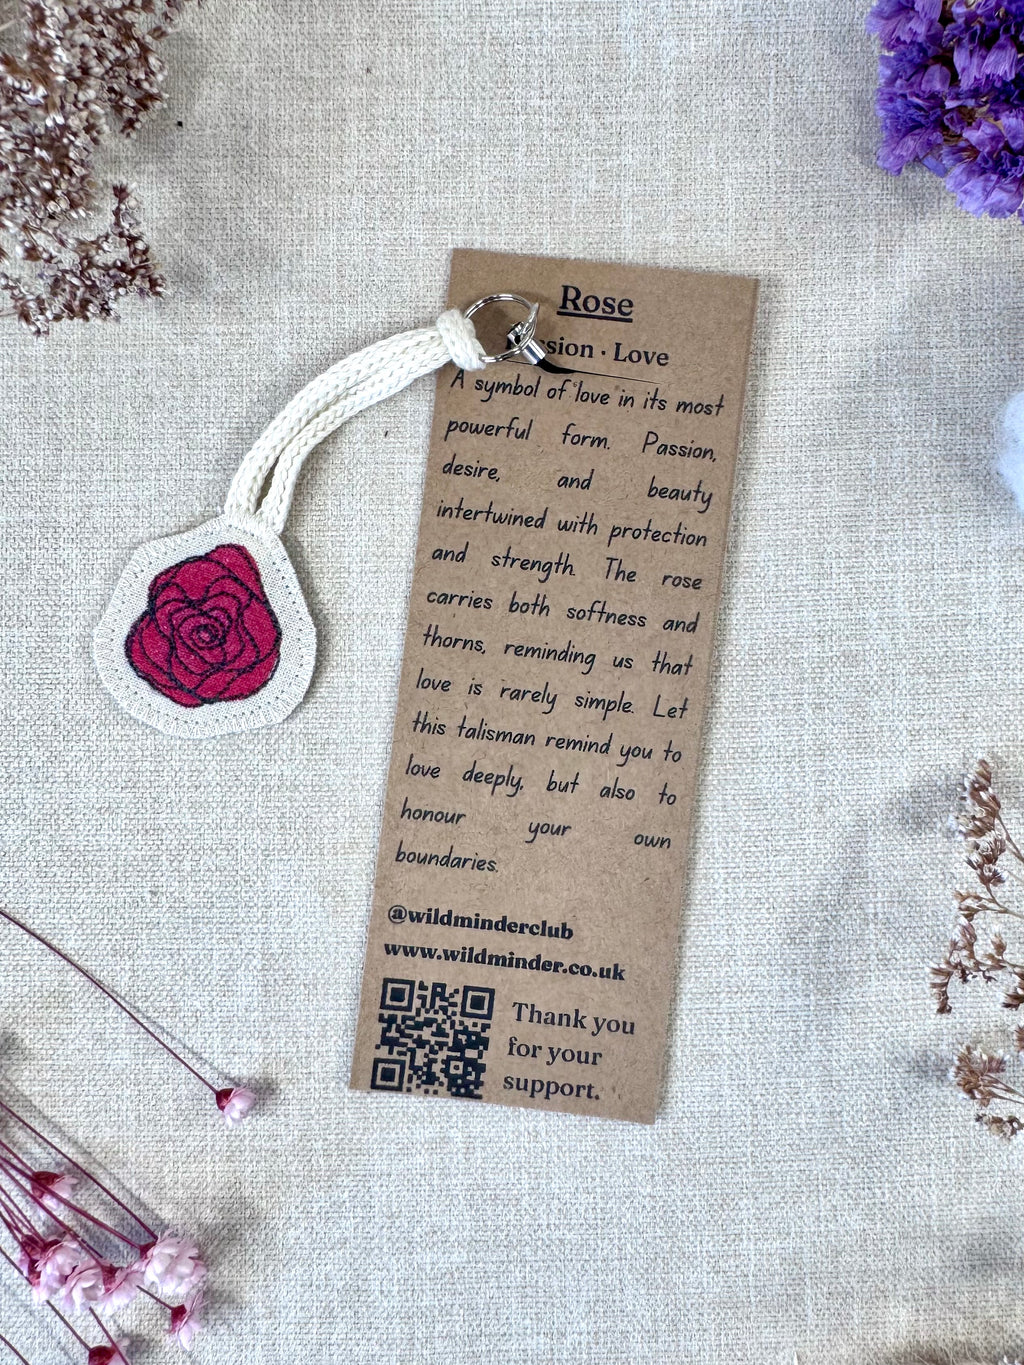 Rose
sion · Love
A symbol of love in its most
powerful form. Passion,
desire, and beauty
intertwined with protection
and strength. The rose
carries both softness and
thorns, reminding us that
love is rarely simple. Let
this talisman remind you to
love deeply, but also to
honour your own
boundaries.
@wildminderclub
www.wildminder.co.uk
Thank you
for your
support.